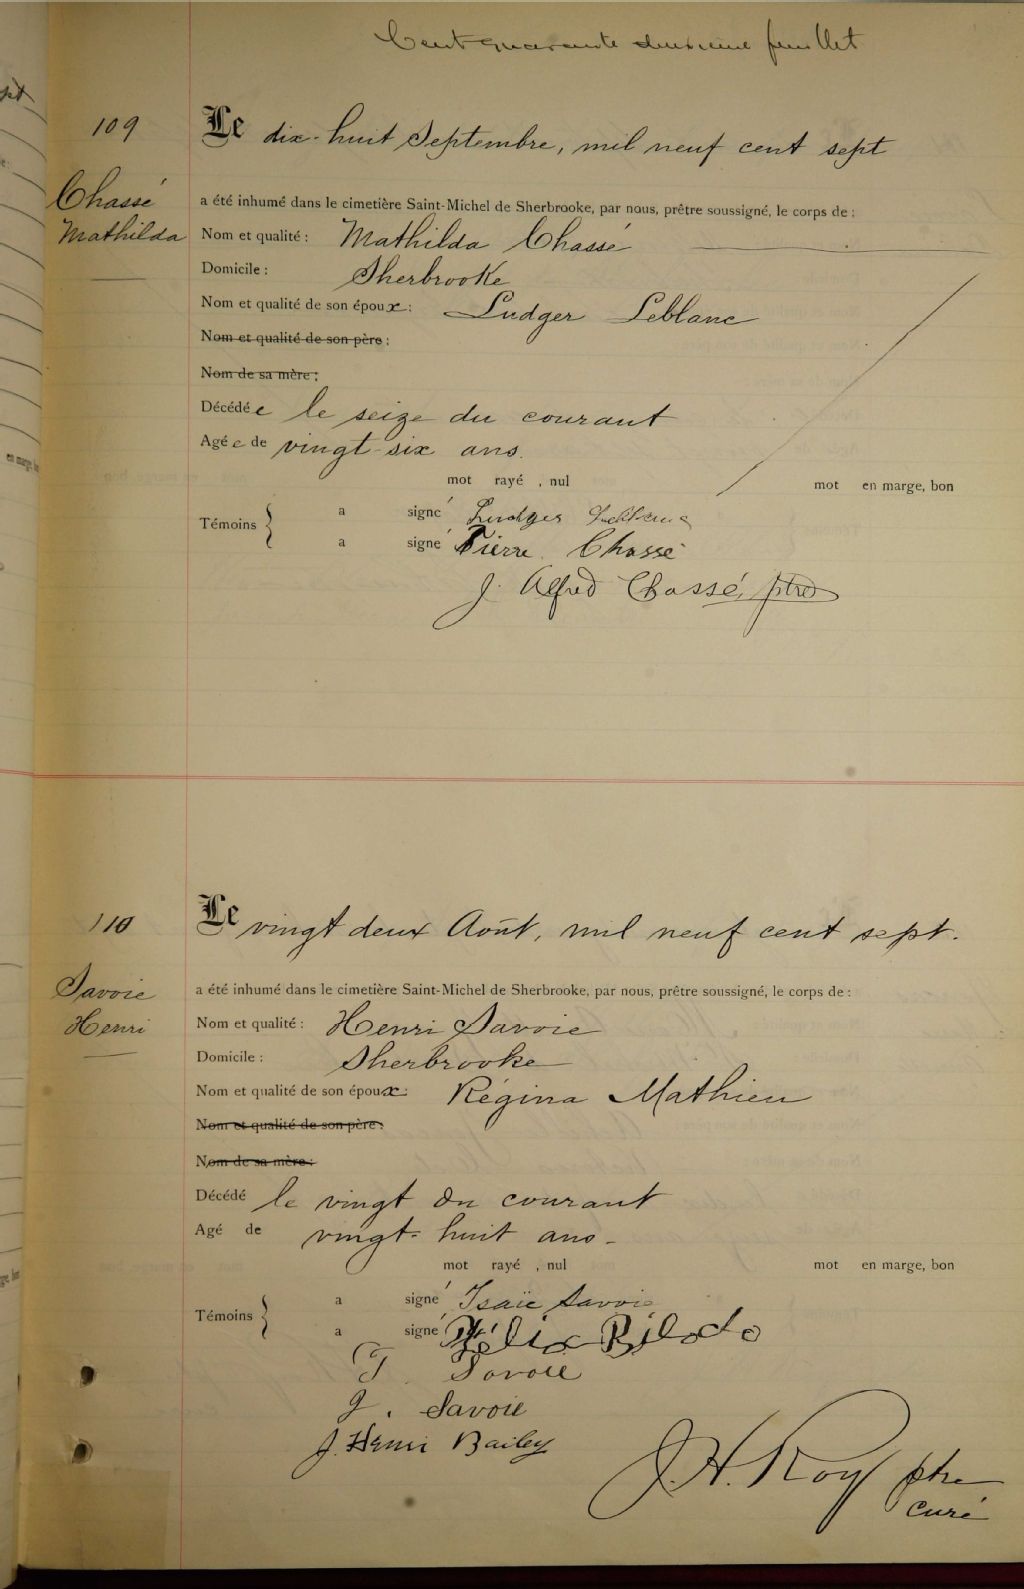 Cent quarante deuxième feuillet
109
Le dix-huit Septembre, mil neuf cent sept
Chassé
Mathilda
a été inhumé dans le cimetière Saint-Michel de Sherbrooke, par nous, prêtre soussigné, le corps de :
Nom et qualité : Mathilda Chassé
Domicile : Sherbrooke
Nom et qualité de son époux : Ludger Leblanc
Nom et qualité de son père :
Nom de sa mère :
Décédée le seize du courant
Agée de vingt-six ans.
mot rayé , nul mot en marge, bon
Témoins { a signé Ludger Leblanc
a signé Pierre Chassé
J. Alfred Chassé, ptre
110
Le vingt deux Août, mil neuf cent sept.
Savoie
Henri
a été inhumé dans le cimetière Saint-Michel de Sherbrooke, par nous, prêtre soussigné, le corps de :
Nom et qualité : Henri Savoie
Domicile : Sherbrooke
Nom et qualité de son époux : Régina Mathieu
Nom et qualité de son père :
Nom de sa mère :
Décédé le vingt du courant
Agé de vingt-huit ans-
mot rayé , nul mot en marge, bon
Témoins { a signé Isaïe Savoie
a signé Félix Bilodo
Savoie
J. Savoie
J. Henri Bailey
J. H. Roy ptre
curé